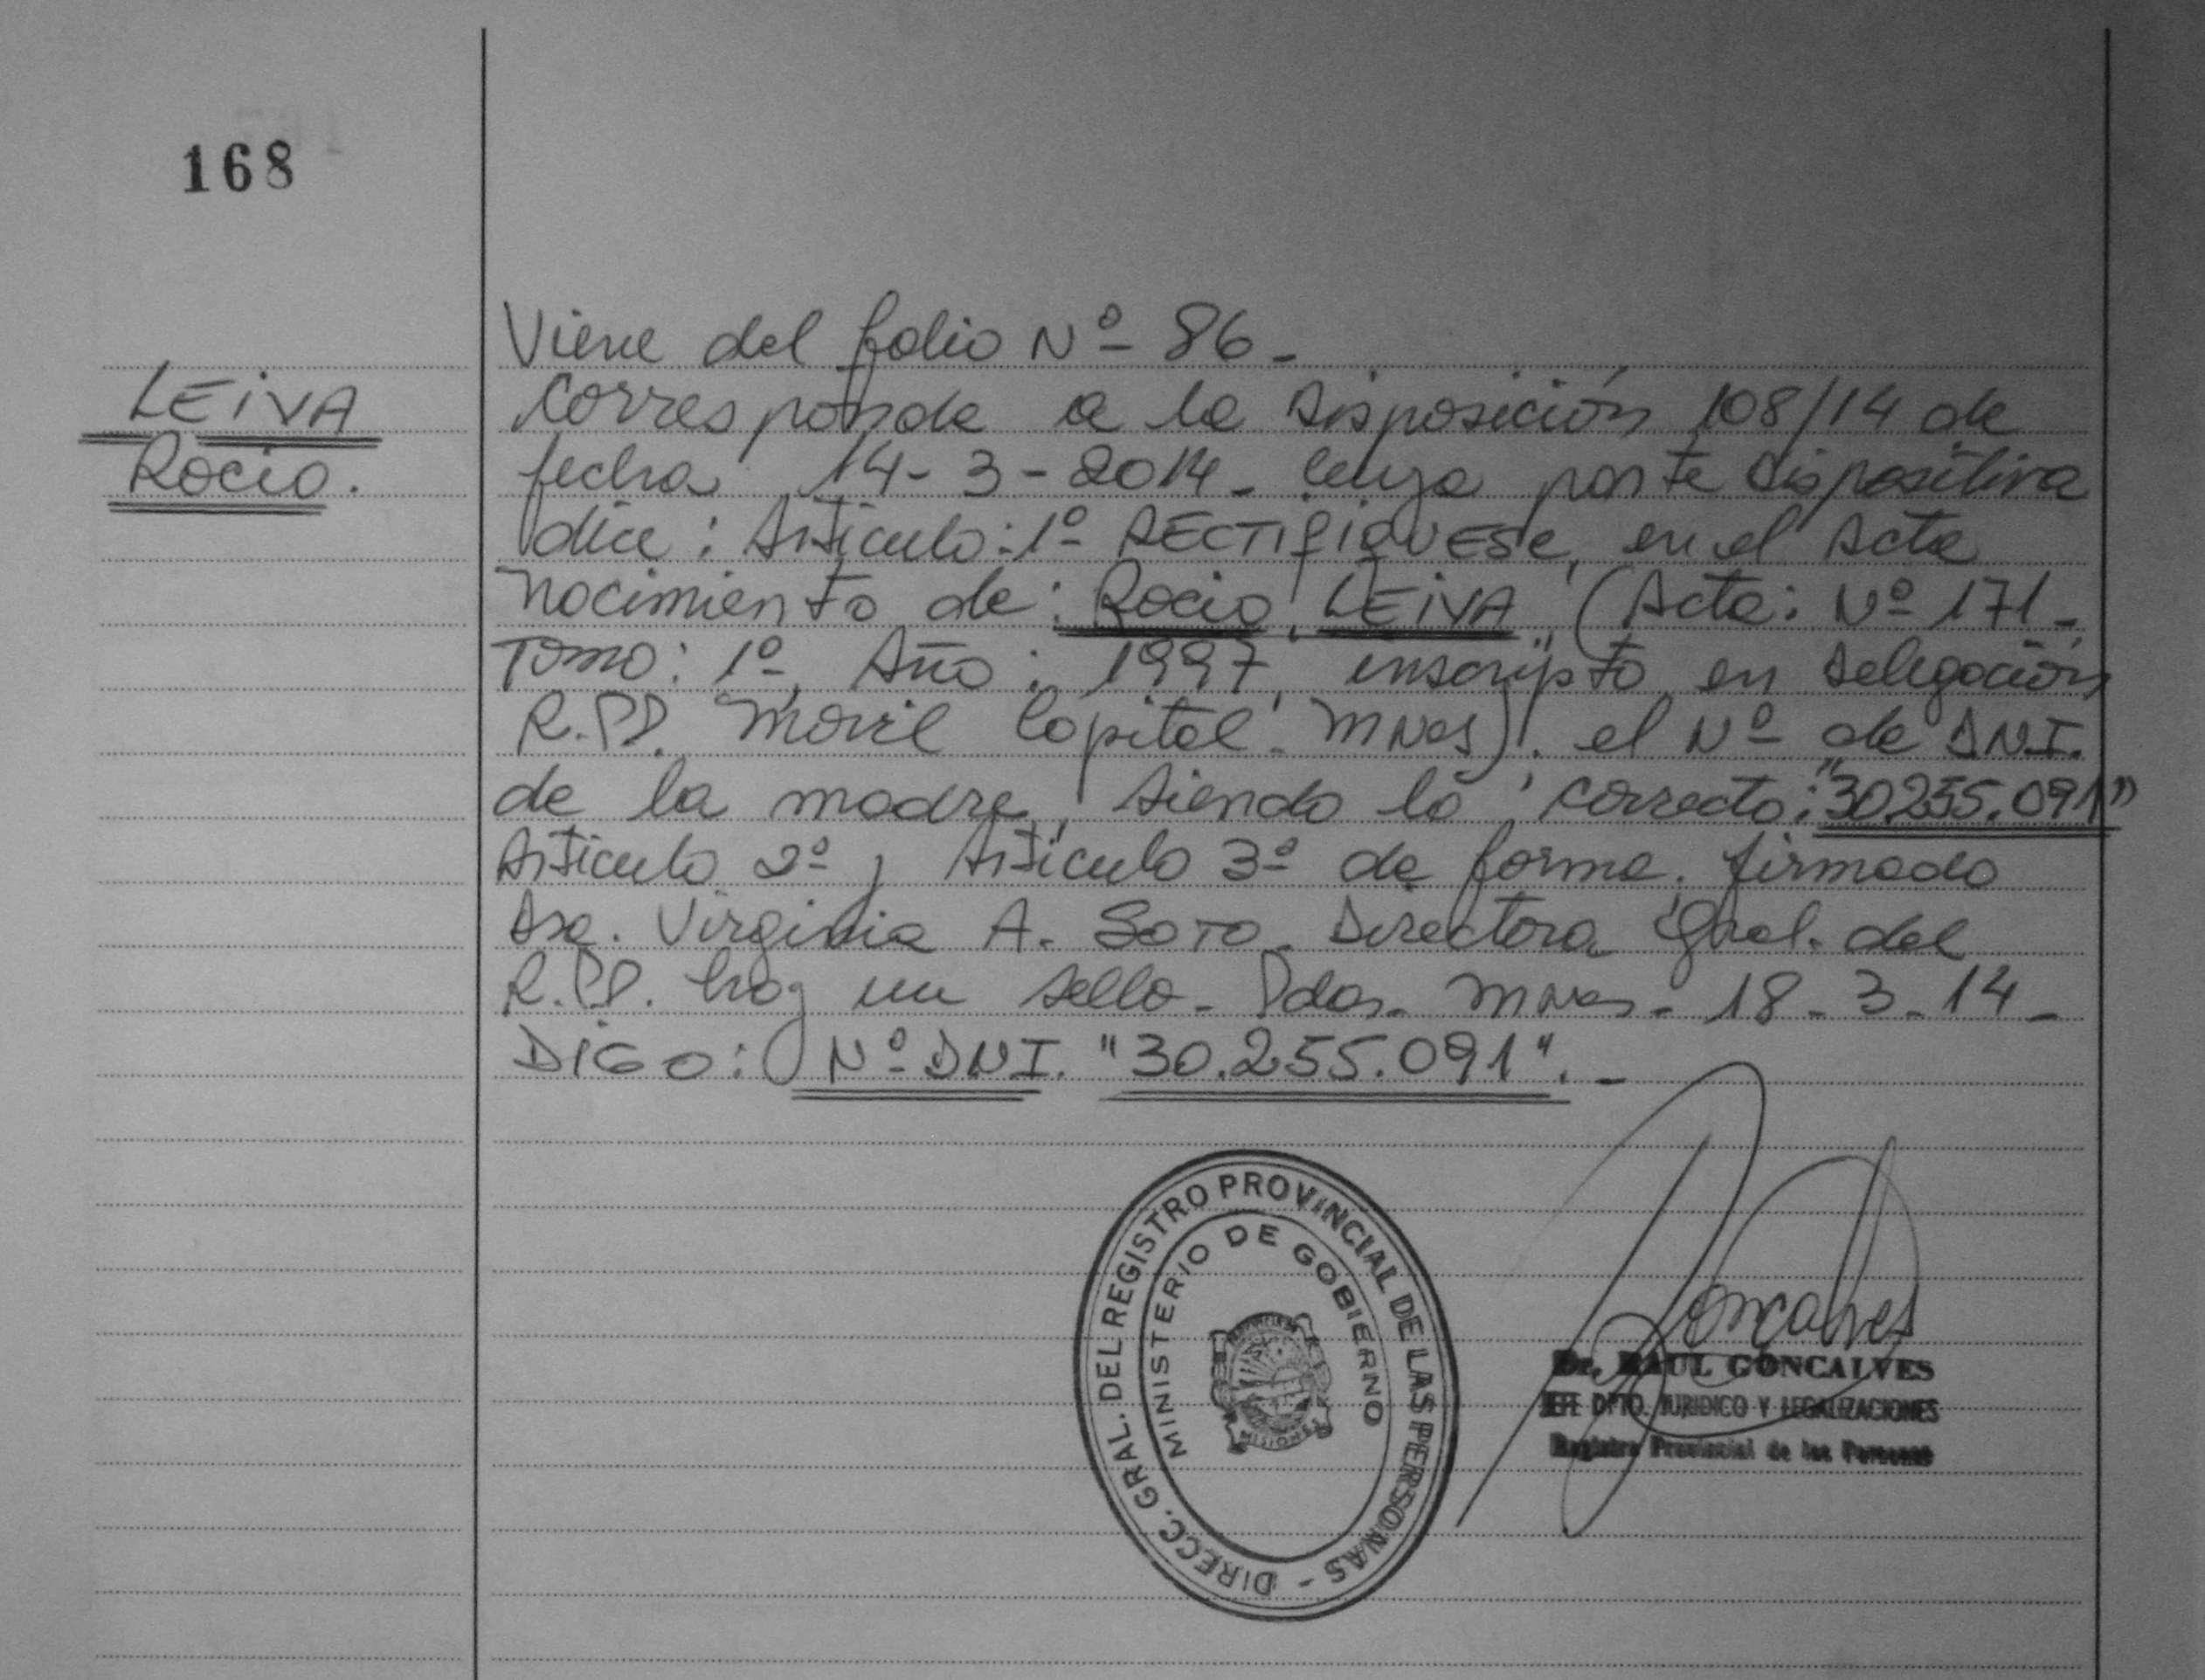 168
LEIVA
Rocio.
Viene del folio Nº- 86-
Corresponde a la Disposición 108/14 de
fecha 14-3-2014- Cuya parte dispositiva
dice: Artículo: 1º RECTIFIQUESE, en el Acta
nacimiento de: Rocio LEIVA, (Acta: Nº 171-
Tomo: 1º, Año: 1997, inscripto en Delegación
R.PP. Movil Capital- Mnes). el Nº de DNI.
de la madre, siendo lo correcto: "30.255.091"
Artículo 2º, Artículo 3º de forma. firmado
Virginia A. SOTO- Directora Gral. del
R.PP. hay un sello- Pdas- Mnes- 18-3-14-
DIGO: Nº DNI. "30.255.091".-
DIRECC. GRAL. DEL REGISTRO PROVINCIAL DE LAS PERSONAS -
MINISTERIO DE GOBIERNO
MISIONES
Goncalves
Dr. RAUL GONCALVES
JEFE DPTO. JURIDICO Y LEGALIZACIONES
Registro Provincial de las Personas